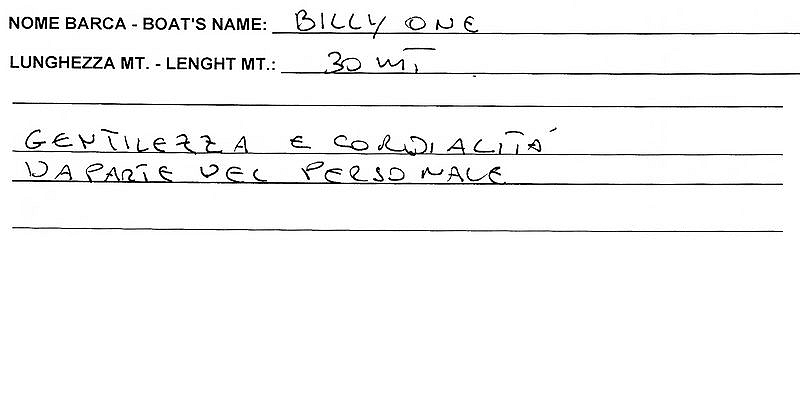 NOME BARCA - BOAT'S NAME: BILLY ONE
LUNGHEZZA MT. - LENGHT MT.: 30 MT
GENTILEZZA E CORDIALITÁ
DA PARTE DEL PERSONALE